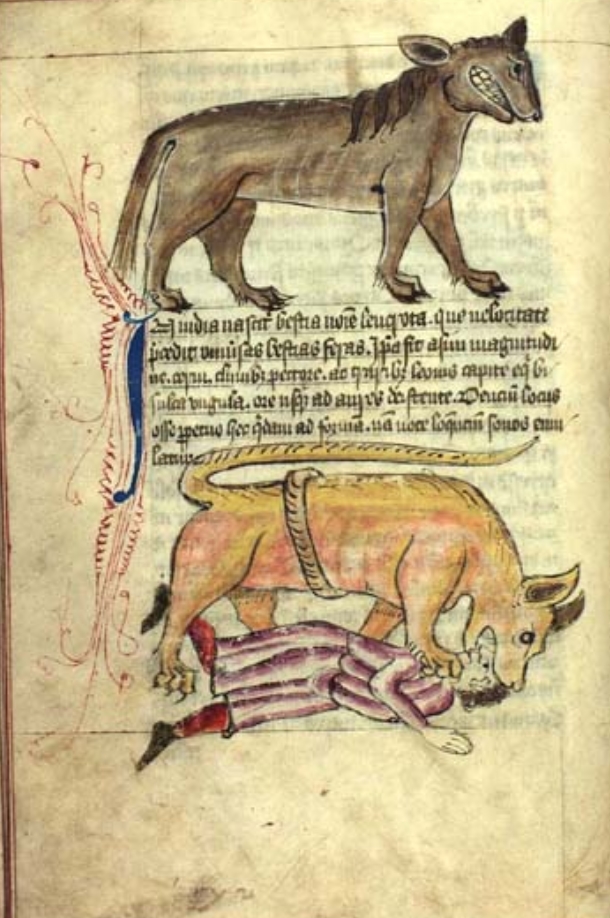 In india nascit᷑ bestia noīe leucrota. que uelocitate
p̄cedit uniu͛sas bestias feras. Ip̄a fit asini magnitudi
ne. cerui. clunibꝫ pectore. ac leonis capite eq̄ bi
sulca ungula. ore usqꝫ ad aures Dentiū locis
osse ꝑpetuo hec ad formā. nā uoce loquentiū sonos emu
latur.